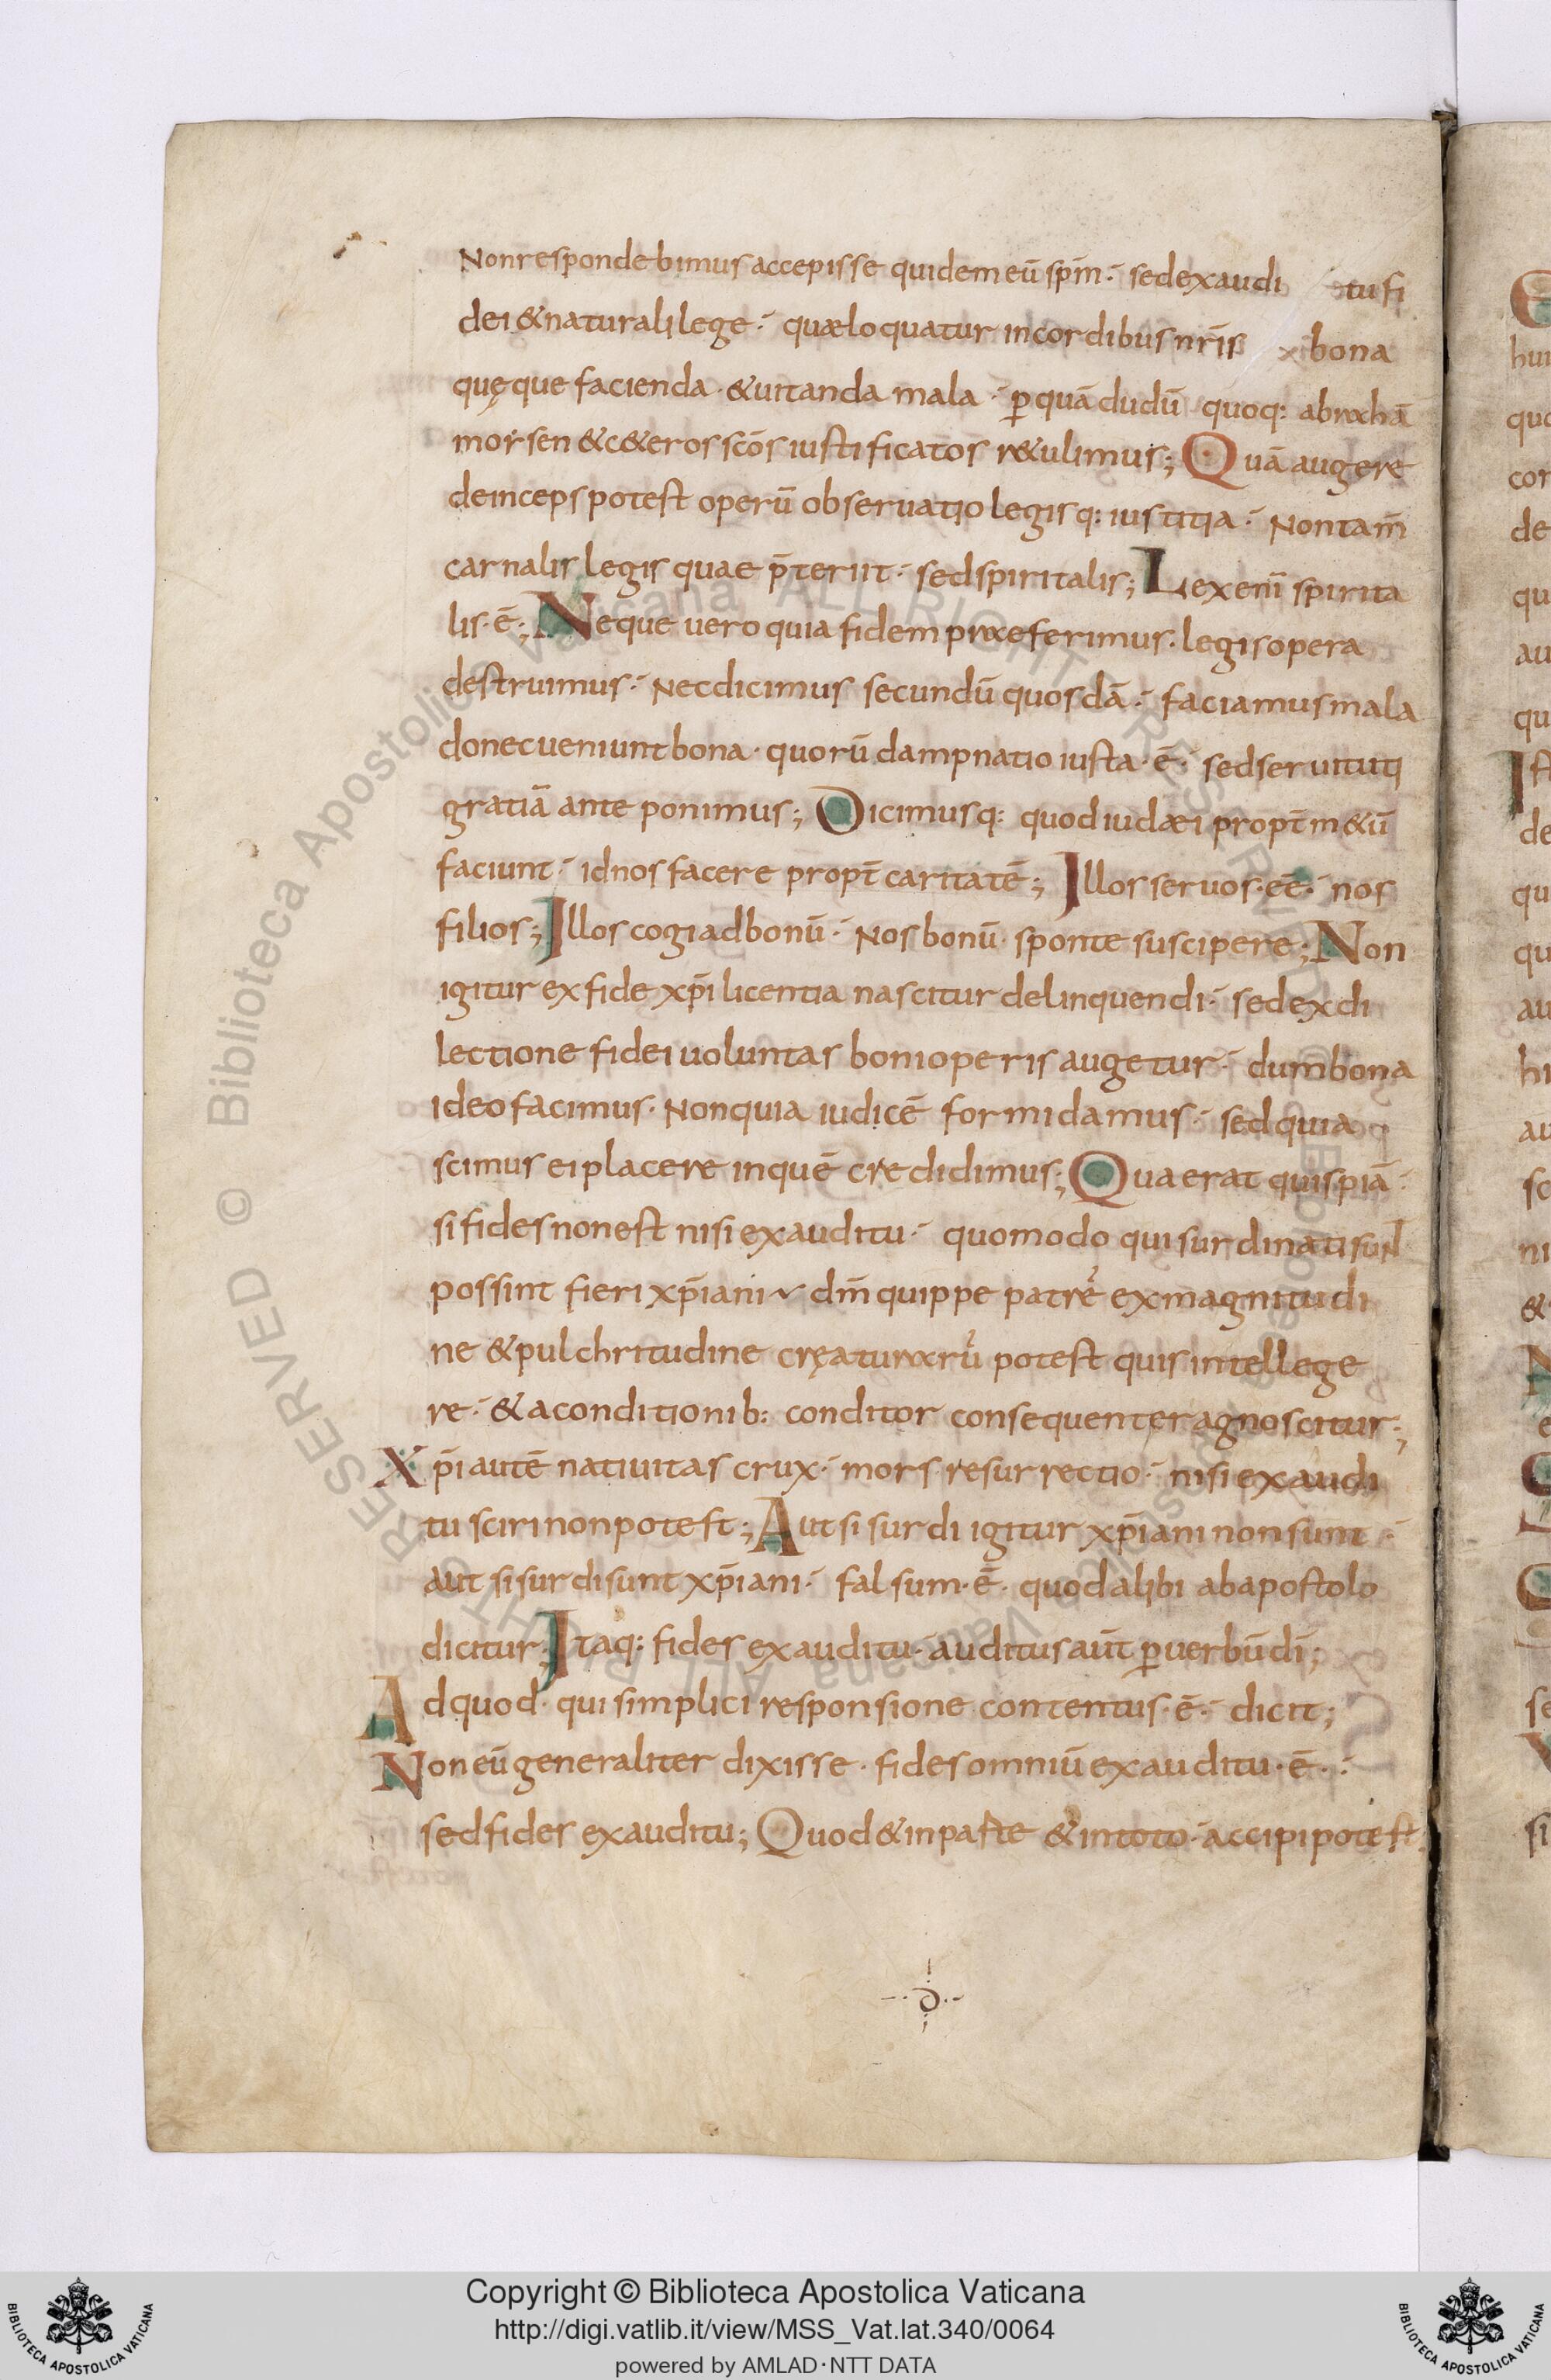 Non respondebimus accepisse quidem eū sp̄m· sed ex audi tu fi
dei & naturali lege· quæ loquatur in cordibus nr̄is bona
quęque facienda · & uitanda mala · ꝑ quā dudū quoq: abrahā
morsen & c&eros sc̄os iustificatos r&ulimus; Quā augere
deinceps potest operū obseruatio legisq: iustitia · Non tam̄
carnalis legis quae p̄teriit · sed spiritalis; Lex eni̅ spirita
lis·ē; Neque uero quia fidem praeferimus· legis opera
destruimus · Nec dicimus secundū quosdā · faciamus mala
donec ueniunt bona · quorū dampnatio iusta·ē· sed seruituti
gratiā ante ponimus; Dicimusq: quod iudæi propt̄ m&ū
faciunt · id nos facere propt̄ caritatē; Illos seruos·eē· nos
filios; Illos cogi ad bonū · Nos bonū sponte suscipere; Non
igitur ex fide xp̄i licentia nascitur delinquendi · sed ex di
lectione fidei uoluntas boni operis augetur · dum bona
ideo facimus · Non quia iudicē formidamus · sed quia
scimus ei placere in quē credidimus; Quaerat quispiā ·
si fides non est nisi ex auditu · quomodo qui surdi nati sunt
possint fieri xp̄iani dm̄ quippe patrē ex magnitudi
ne & pulchritudine cręaturarū potest quis intellege
re · & a conditionib: conditor consequenter agnoscitur;
Xp̄i autē natiuitas crux · mors resurrectio · nisi ex audi
tu sciri non potest; Aut si surdi igitur xp̄iani non sunt ·
aut si surdi sunt xp̄iani · falsum·ē· quod alibi ab apostolo
dicitur; Itaq: fides ex auditu · auditus aut̄ ꝑ uerbū dī;
Ad quod · qui simplici responsione contentus·ē· dicit;
Non eū generaliter dixisse · fides omniū ex auditu·ē· ·
sed fides ex auditu; Quod & in parte & in toto · accipi potest
Copyright © Biblioteca Apostolica Vaticana
http://digi.vatlib.it/view/MSS_Vat.lat.340/0064
powered by AMLAD·NTT DATA